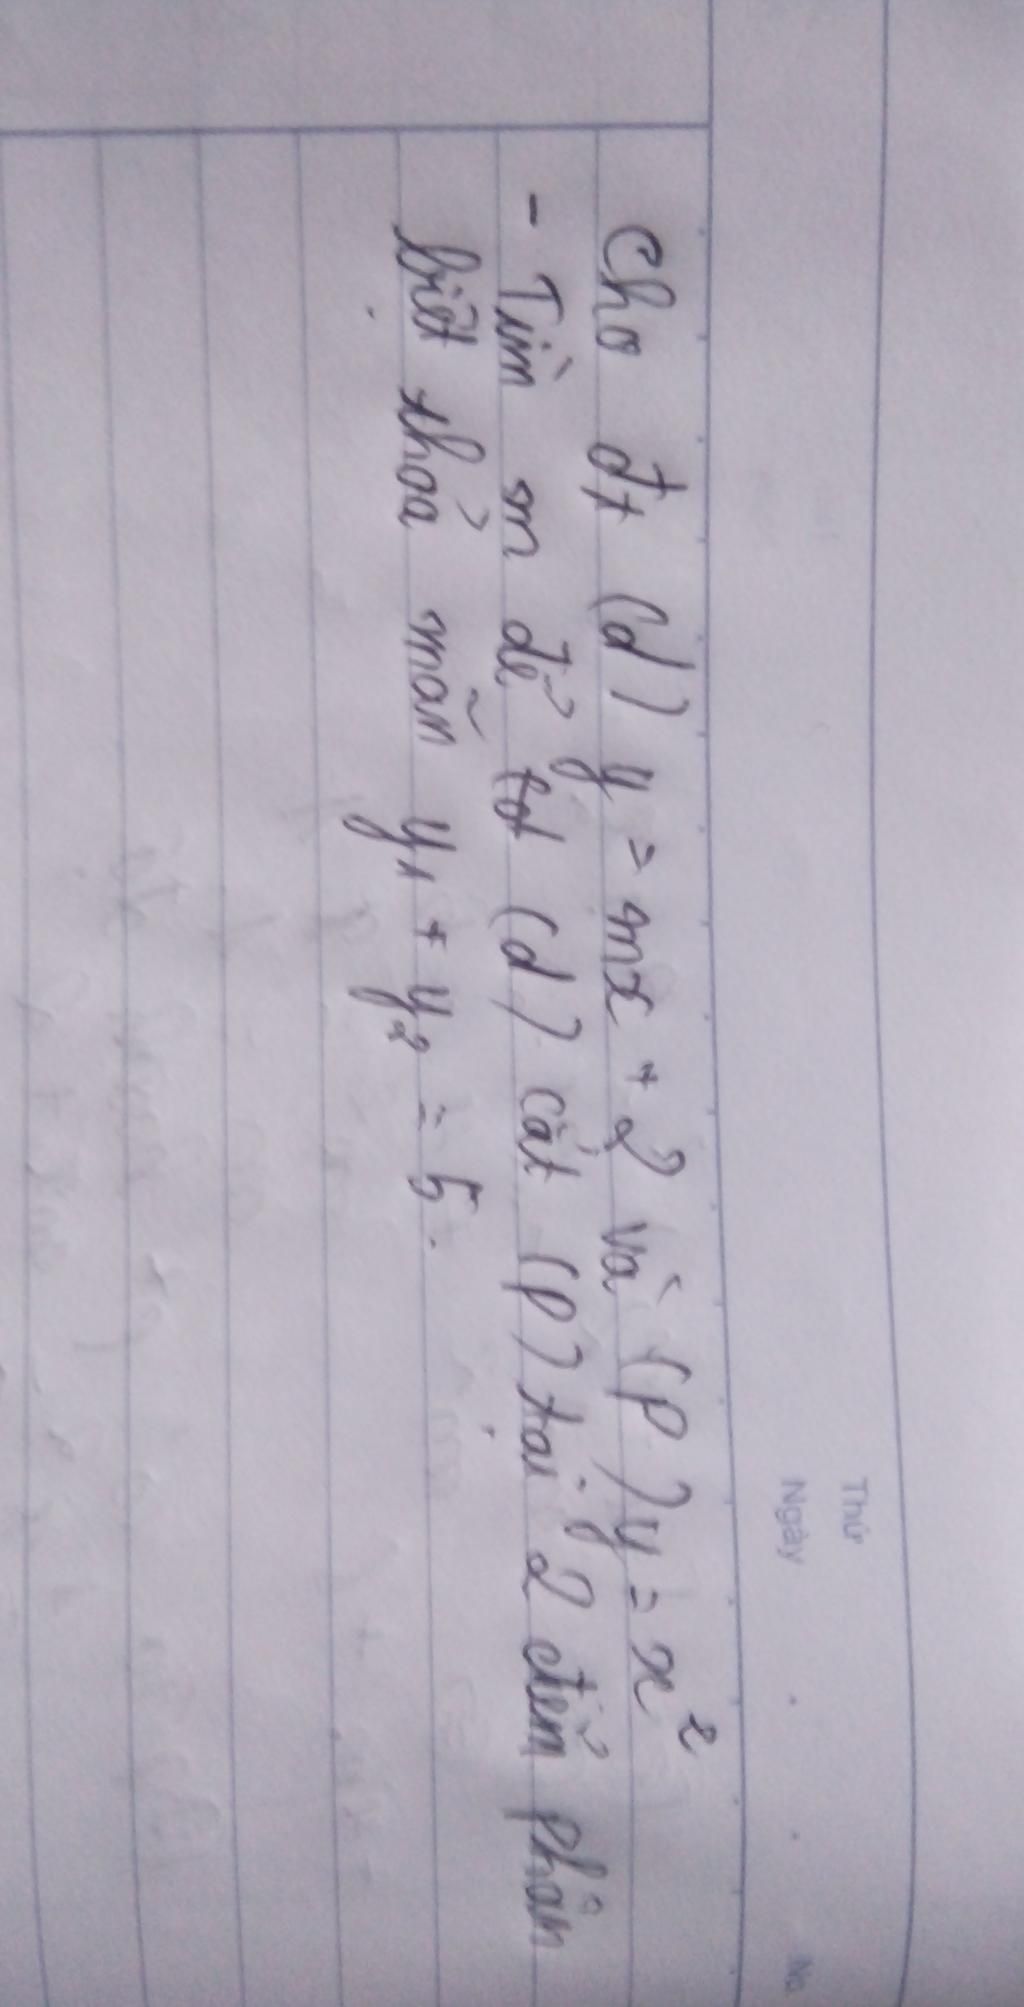 Thứ
Ngày
No
Cho đt (d) y = mx + 2 và (P) y = x²
- Tìm m để (d) cắt (P) tại 2 điểm phân
biệt thỏa mãn y₁ + y₂ = 5.